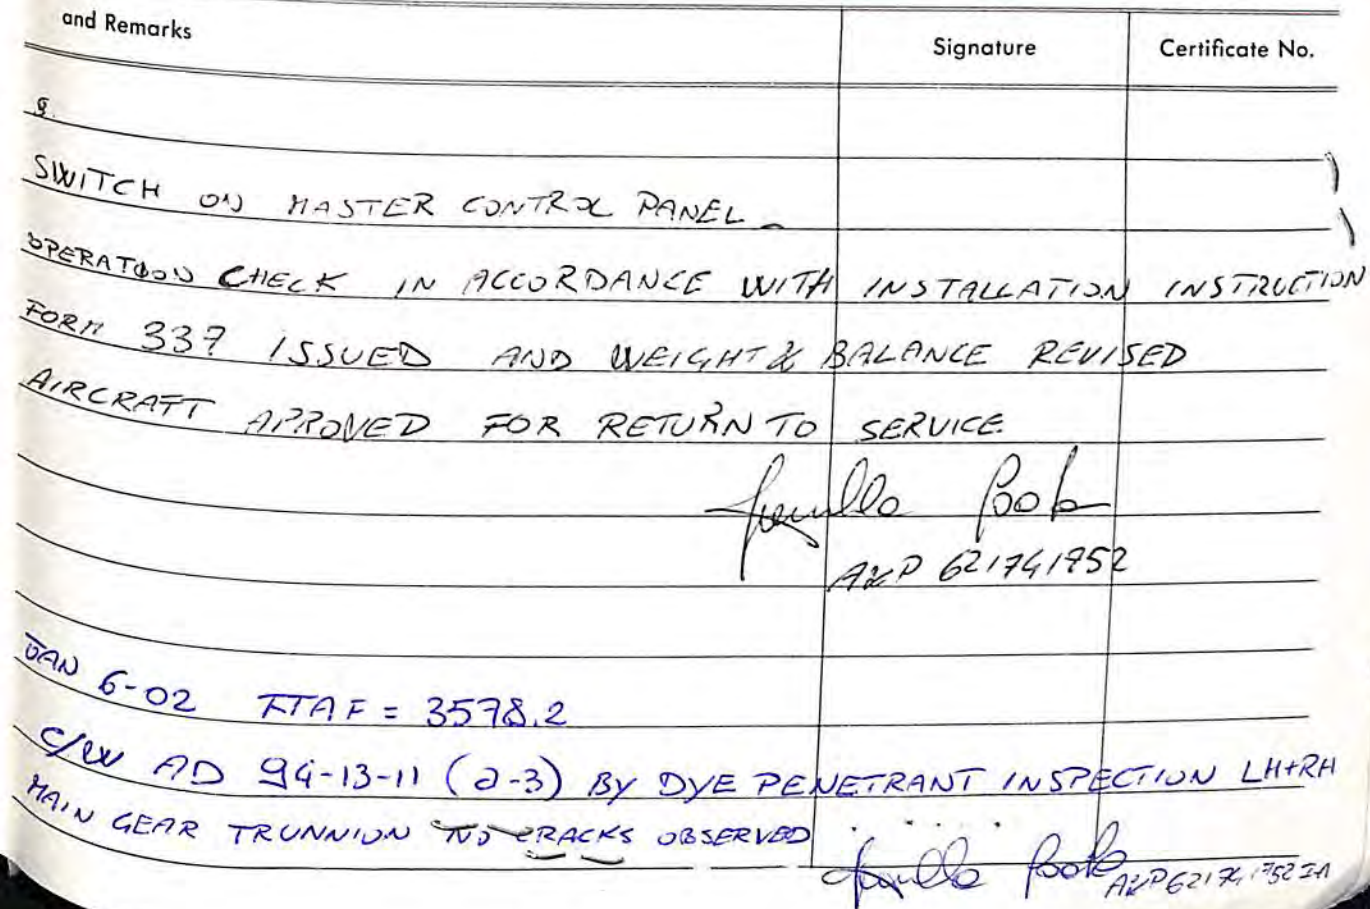 and Remarks Signature Certificate No.
SWITCH ON MASTER CONTROL PANEL
OPERATION CHECK IN ACCORDANCE WITH INSTALLATION INSTRUCTION
FORM 337 ISSUED AND WEIGHT & BALANCE REVISED
AIRCRAFT APROVED FOR RETURN TO SERVICE
A&P 621741752
JAN 6-02 TTAF = 3578.2
C/W AD 94-13-11 (a-3) BY DYE PENETRANT INSPECTION LH+RH
MAIN GEAR TRUNNION NO CRACKS OBSERVED
A&P 621741752 IA